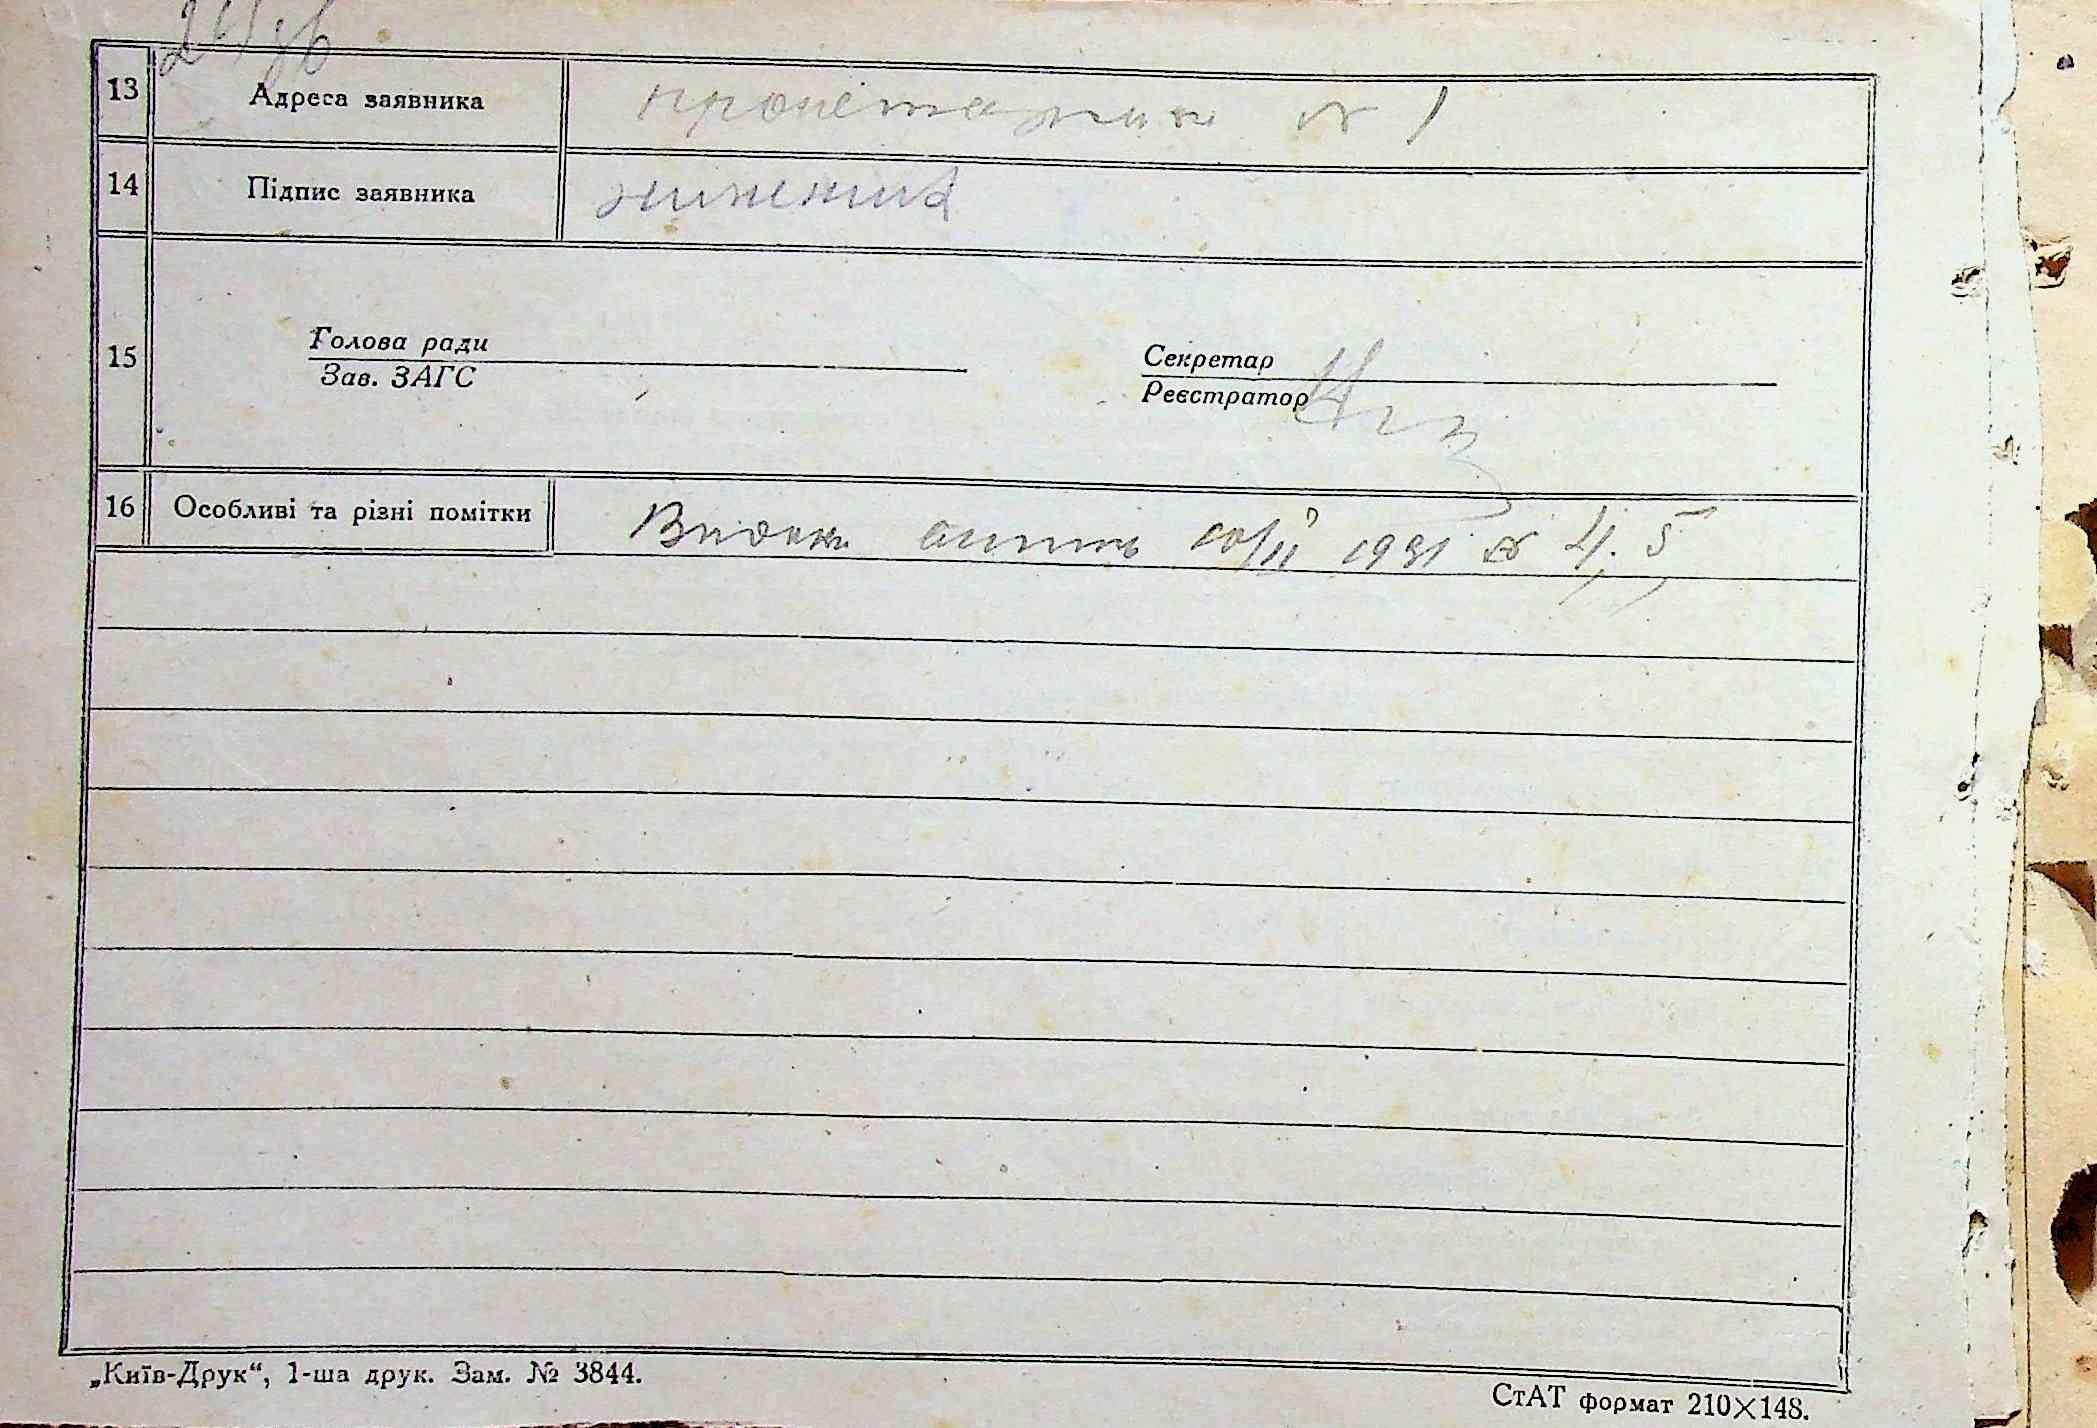 13 Адреса заявника № 1
14 Підпис заявника
Голова ради
Зав. ЗАГС
15
Секретар
Реєстратор
16 Особливі та різні помітки 1931 № 4, 5
„Київ-Друк“, 1-ша друк. Зам. № 3844.
СтАТ формат 210×148.